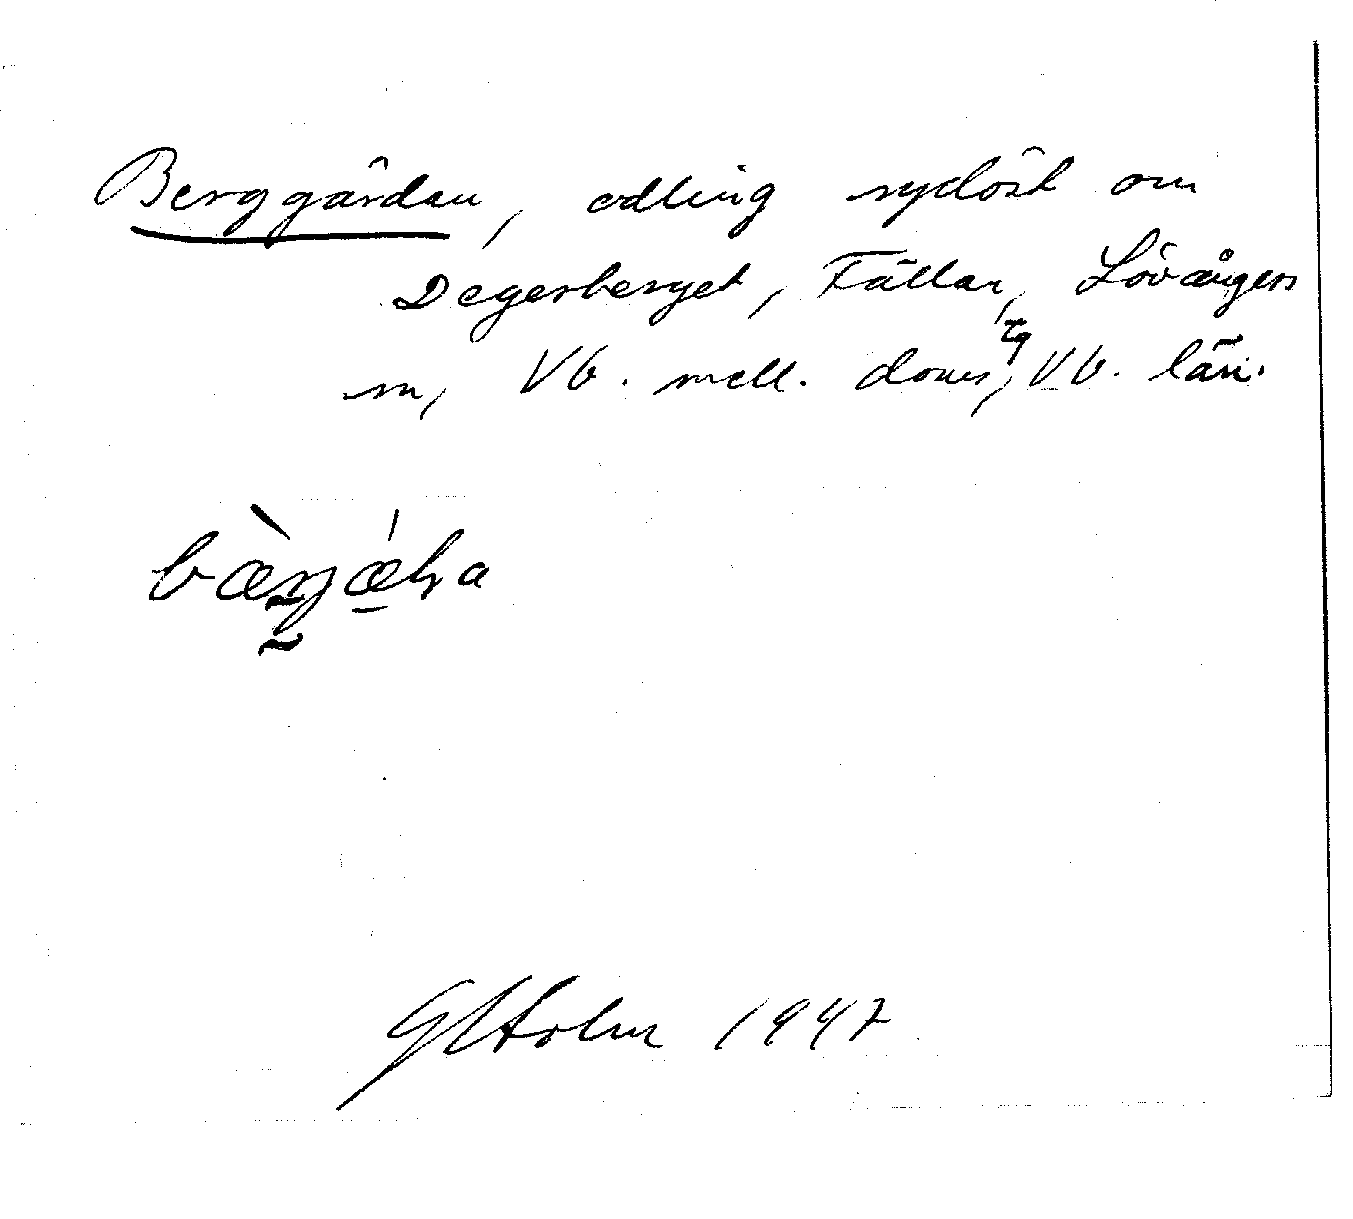 Berggärdan, odling sydöst om
Degerberget, Fällan, Lövångers
sn, Vb. mell. doms tg, Vb. län.
GHolm 1947